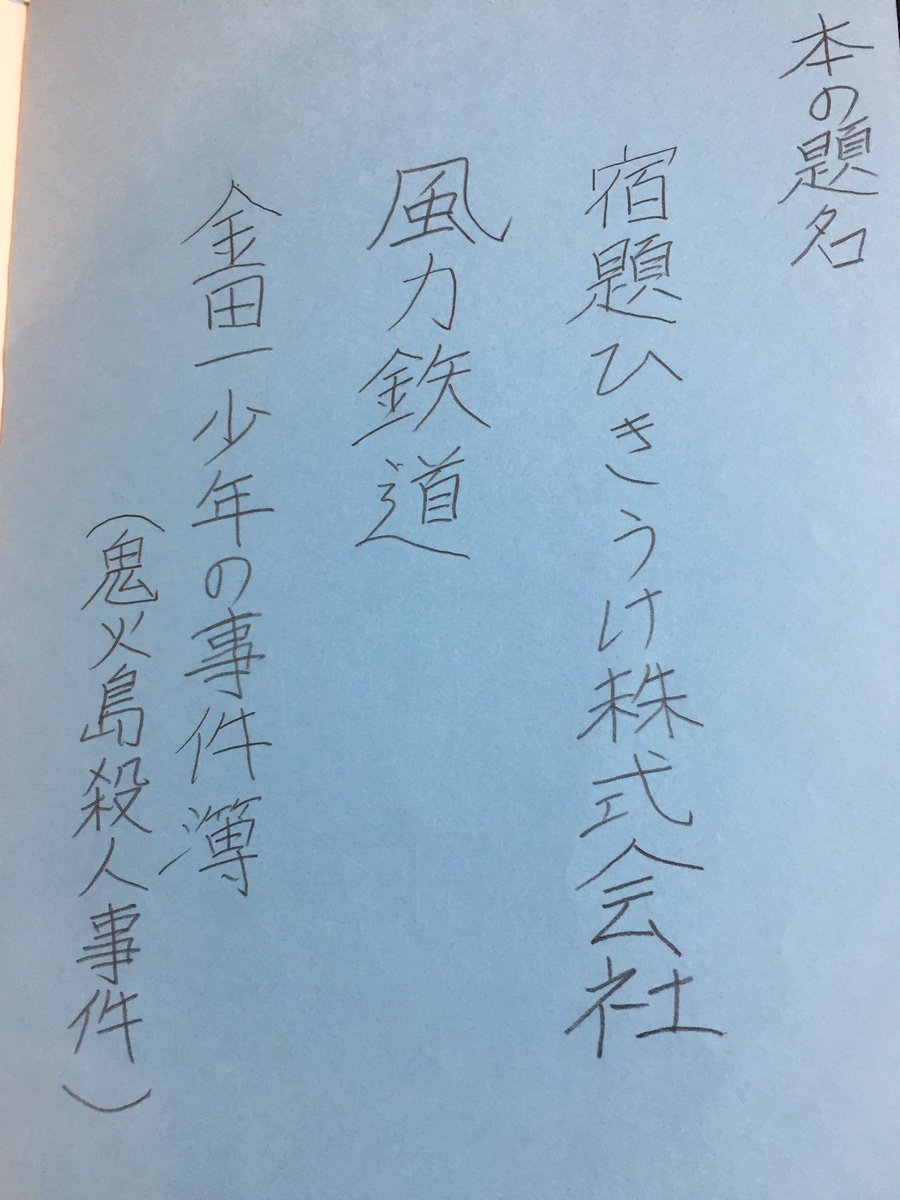 本の題名
宿題ひきうけ株式会社
風力鉄道
金田一少年の事件簿
(鬼火島殺人事件)